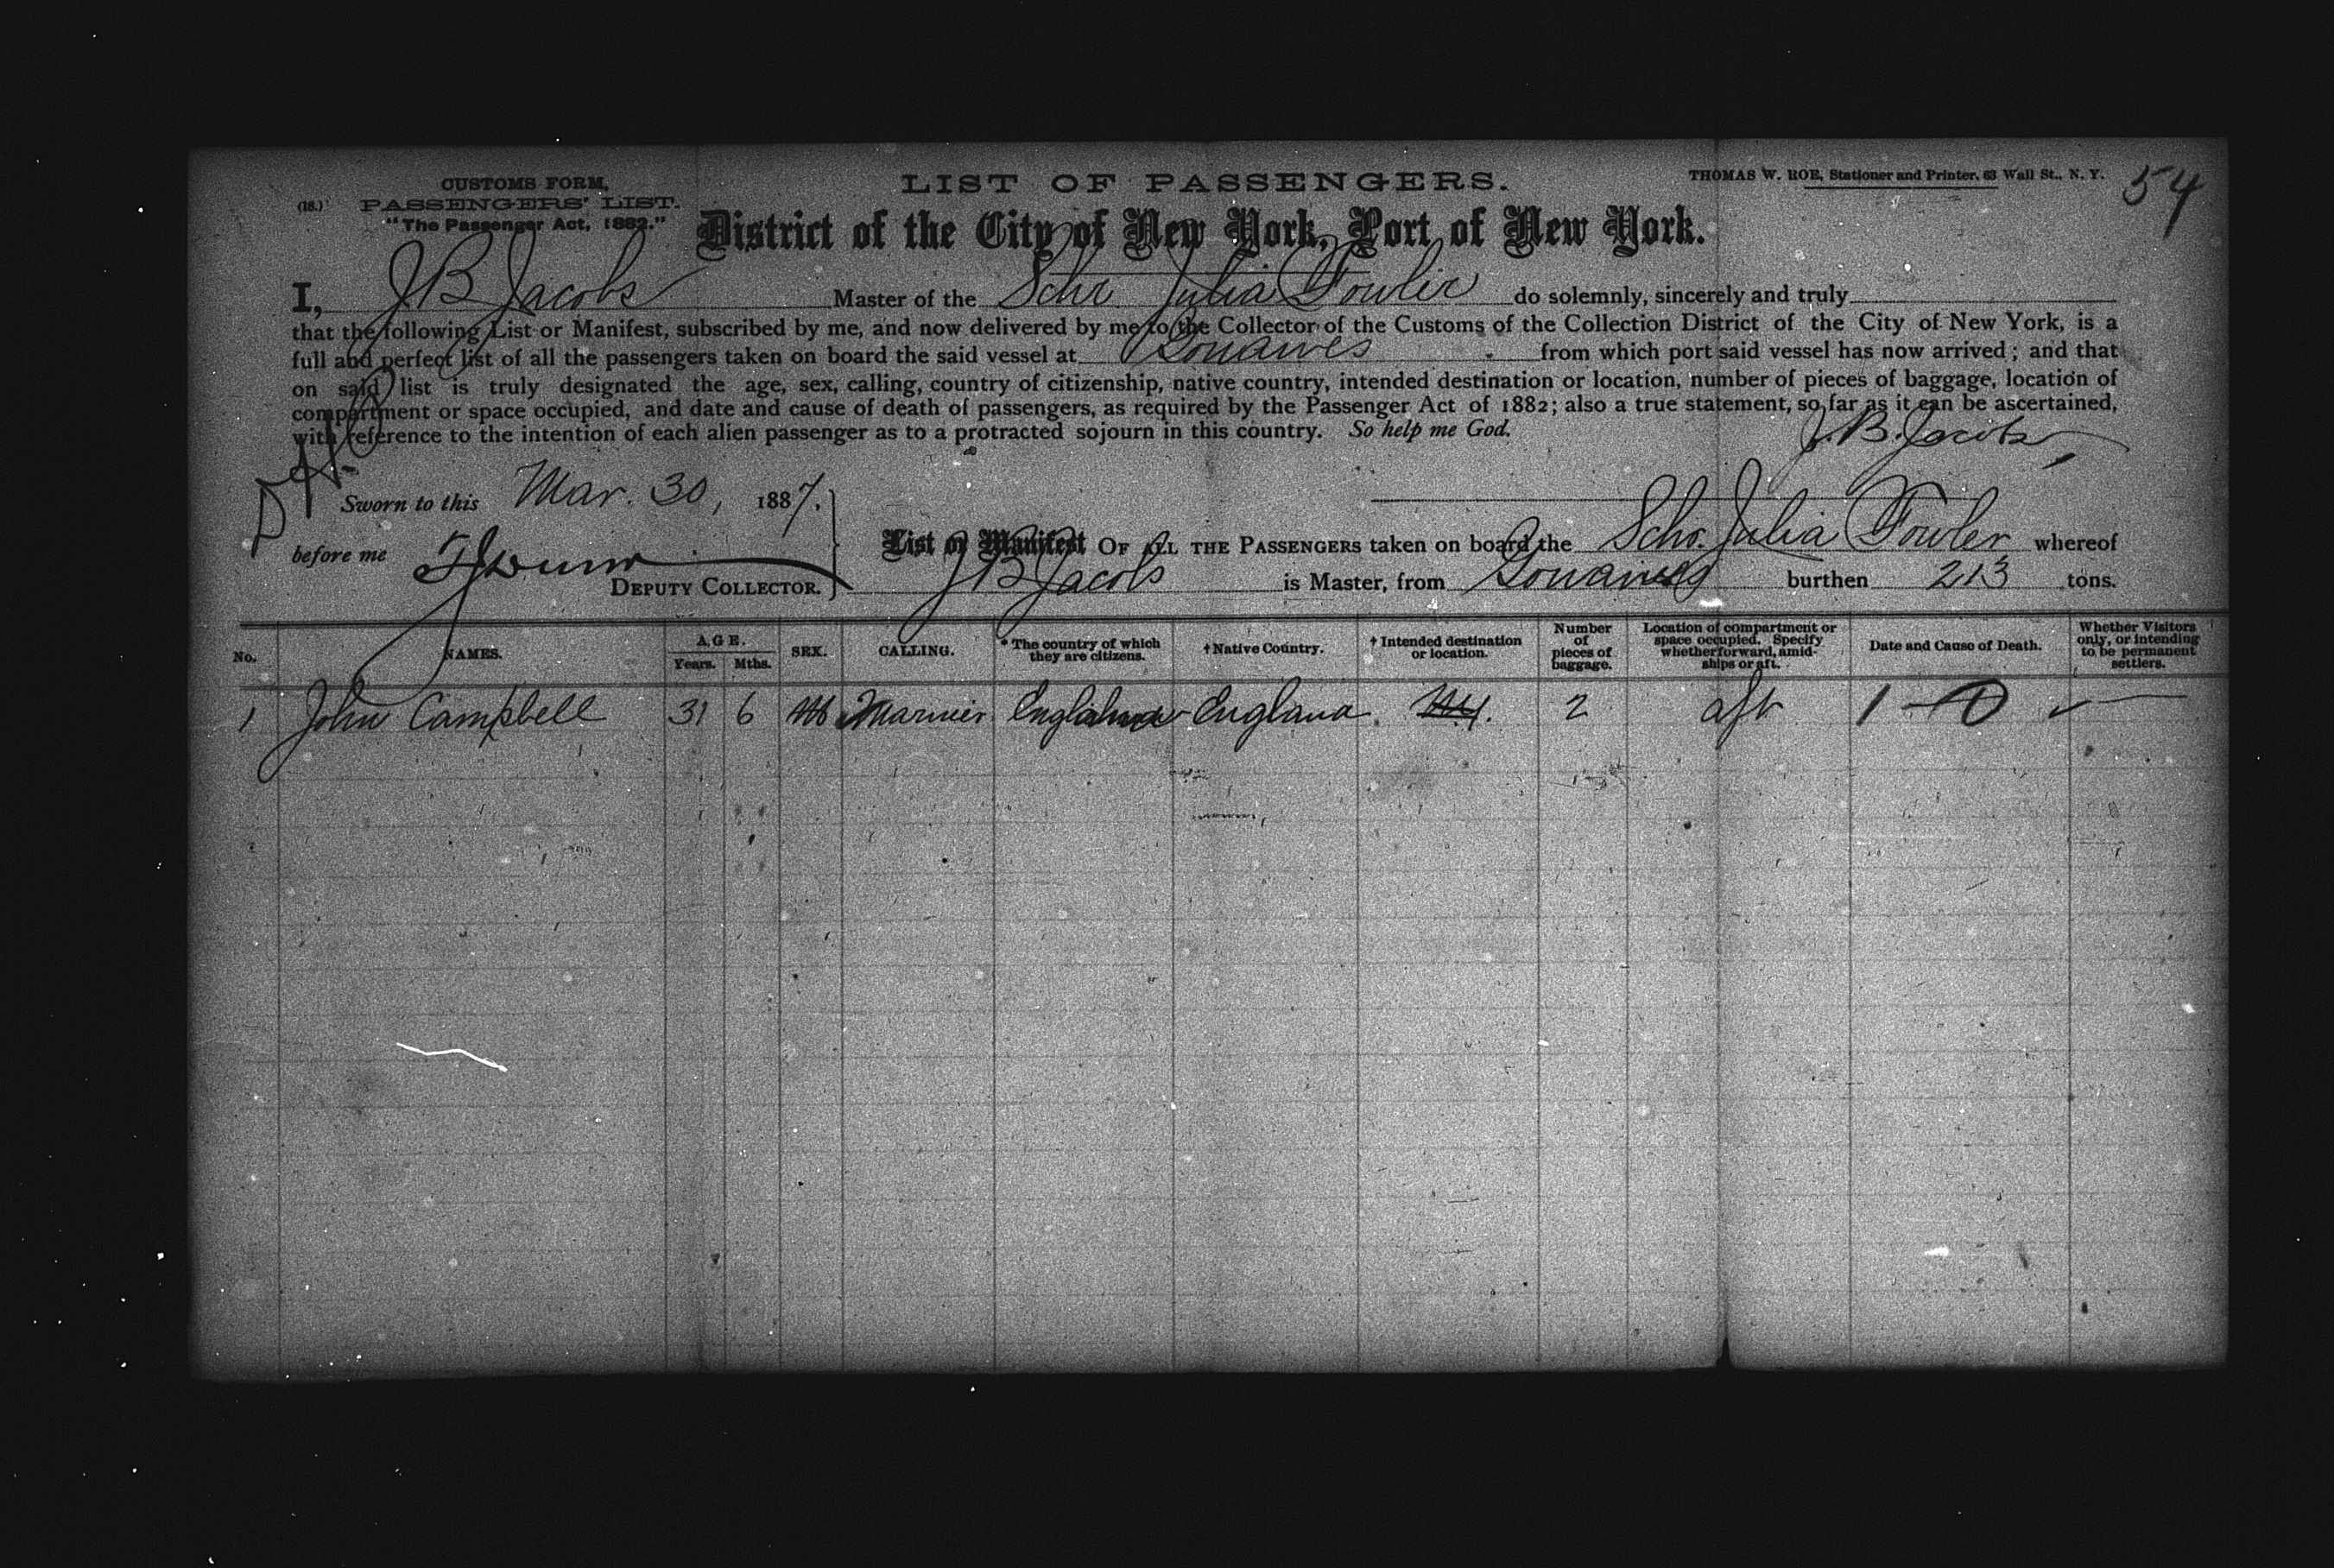 CUSTOMS FORM,
(18.) PASSENGERS' LIST.
"The Passenger Act, 1882."
LIST OF PASSENGERS.
THOMAS W. ROE, Stationer and Printer, 63 Wall St., N. Y.
54
District of the City of New York, Port of New York.
I, J B Jacobs Master of the Schr Julia Fowler do solemnly, sincerely and truly
that the following List or Manifest, subscribed by me, and now delivered by me to the Collector of the Customs of the Collection District of the City of New York, is a
full and perfect list of all the passengers taken on board the said vessel at Gonaives from which port said vessel has now arrived; and that
on said list is truly designated the age, sex, calling, country of citizenship, native country, intended destination or location, number of pieces of baggage, location of
compartment or space occupied, and date and cause of death of passengers, as required by the Passenger Act of 1882; also a true statement, so far as it can be ascertained,
with reference to the intention of each alien passenger as to a protracted sojourn in this country. So help me God.
J. B. Jacobs
Sworn to this Mar. 30, 1887.
before me
DEPUTY COLLECTOR.
List or Manifest OF ALL THE PASSENGERS taken on board the Schr. Julia Fowler whereof
J B Jacobs is Master, from Gonaives burthen 213 tons.
No. NAMES. AGE. Years. Mths. SEX. CALLING. * The country of which they are citizens. † Native Country. † Intended destination or location. Number of pieces of baggage. Location of compartment or space occupied. Specify whether forward, amidships or aft. Date and Cause of Death. Whether Visitors only, or intending to be permanent settlers.
1 John Campbell 31 6 M Mariner England England N.Y. 2 aft 1 - 0